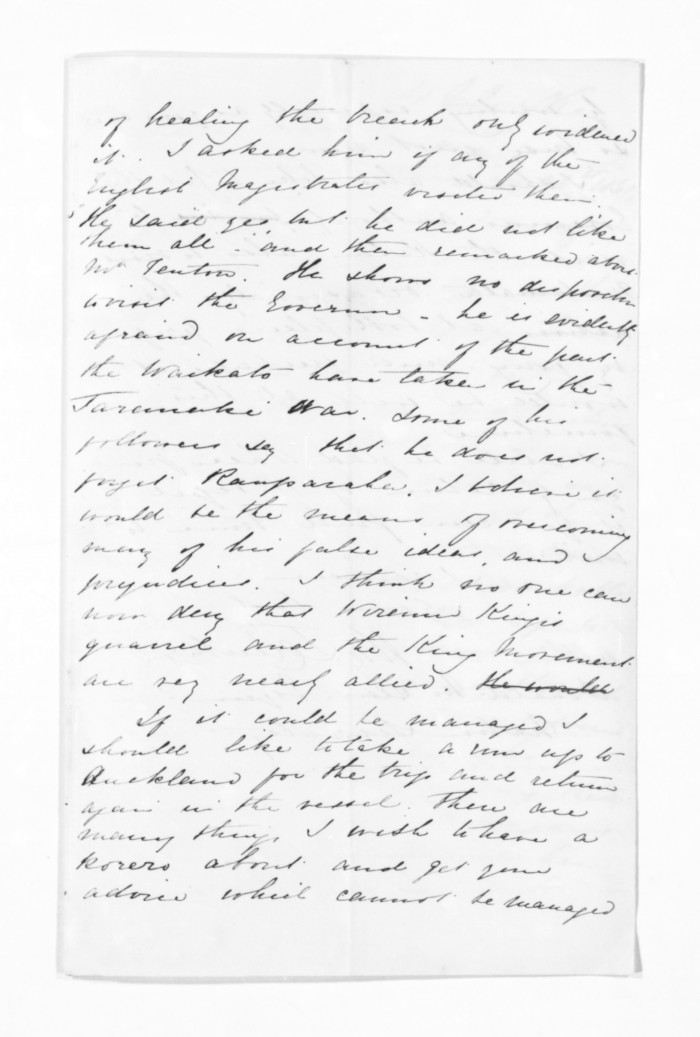 of healing the breach only widened
it. I asked him if any of the
English Magistrates visited them.
He said yes but he did not like
them all - and then remarked about
Mr Fenton. He shows no disposition
to visit the Governor - he is evidently
afraid on account of the part
the Waikato have taken in the
Taranaki War. Some of his
followers say that he does not
forget Rauparaha. I believe it
would be the means of overcoming
many of his false ideas, and
prejudices. I think no one can
now deny that Wiremu Kingis
quarrel and the King Movement
are very nearly allied. He would
If it could be managed I
should like to take a run up to
Auckland for the trip and return
again in the vessel. There are
many things I wish to have a
korero about and get your
advice which cannot be managed